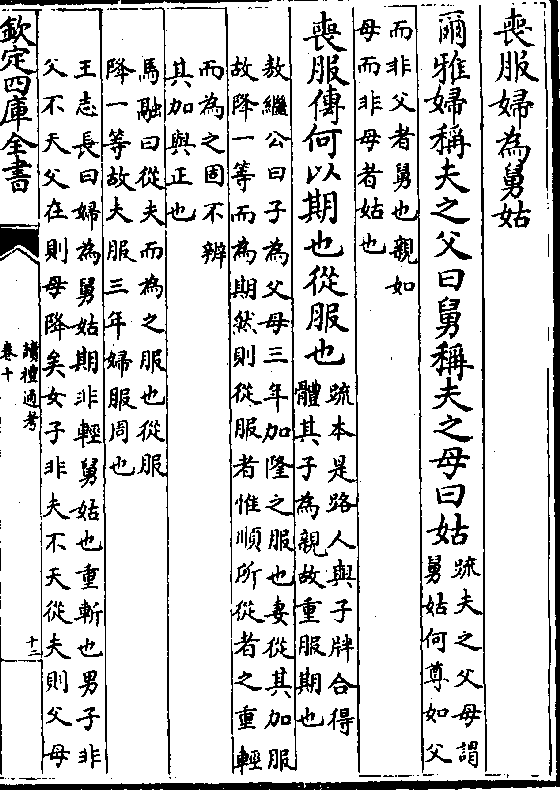 喪服婦為舅姑
爾雅婦稱夫之父曰舅稱夫之母曰姑
疏夫之父母謂
舅姑何尊如父
而非父者舅也親如
母而非母者姑也
喪服傳何以期也從服也
疏本是路人與子牉合得
體其子為親故重服期也
敖繼公曰子為父母三年加隆之服也妻從其加服
故降一等而為期然則從服者惟順所從者之重輕
而為之固不辨
其加與正也
馬融曰從夫而為之服也從服
降一等故夫服三年婦服周也
王志長曰婦為舅姑期非輕舅姑也重斬也男子非
父不天父在則母降矣女子非夫不天從夫則父母
欽定四庫全書
讀禮通考
卷十
十二